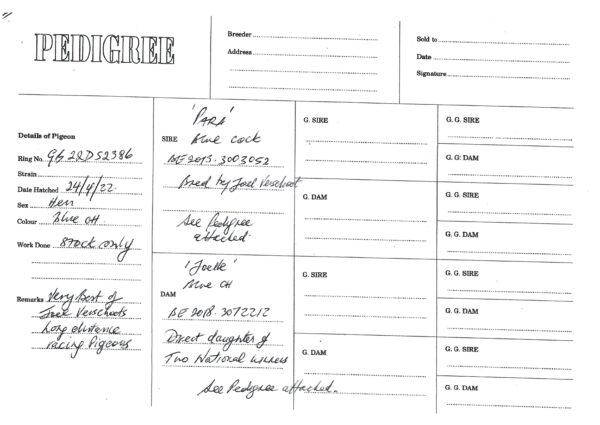 PEDIGREE
Breeder
Address
Sold to
Date
Signature
Details of Pigeon
Ring No. GB 22D52386
Strain
Date Hatched 24/4/22.
Sex Hen
Colour Blue CH
Work Done Stock only
Remarks Very Best of
Joel Verschoots
Long distance
racing Pigeons
'PARA'
SIRE Blue cock
BE 2015.3003052
Bred by Joel Verschoot
See Pedigree
attached.
'Joelle'
Blue CH
DAM
BE 2018.3072212
Direct daughter of
Two National winners
See Pedigree attached.
G. SIRE
G. DAM
G. SIRE
G. DAM
G. G. SIRE
G. G. DAM
G. G. SIRE
G. G. DAM
G. G. SIRE
G. G. DAM
G. G. SIRE
G. G. DAM